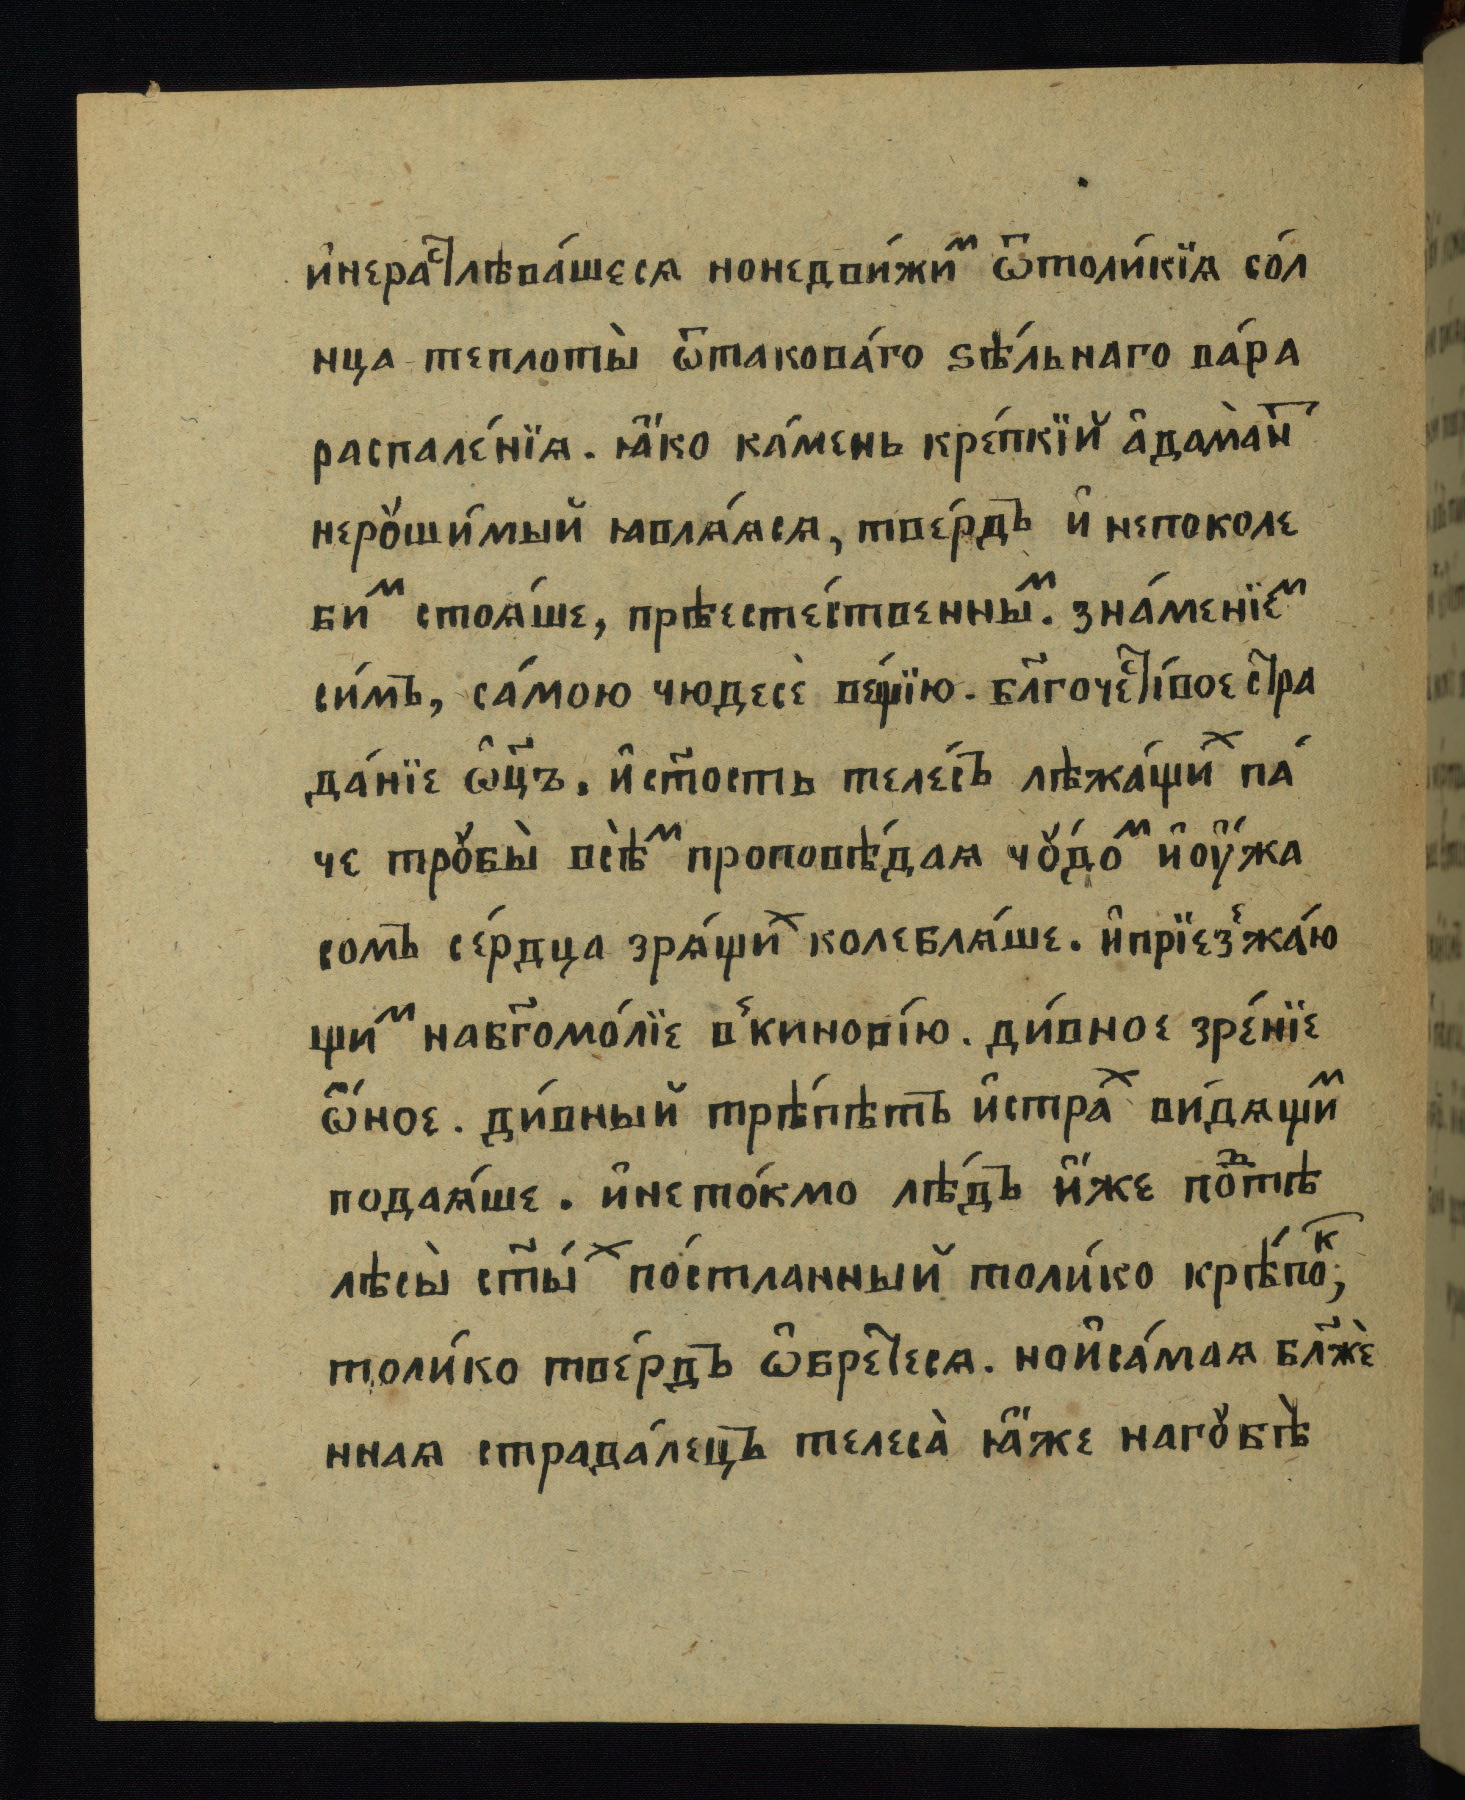 и҆нерас̾тлѣва́шеся нонедви́жиⷨ ѿтоли́кїѧ со́л
нца теплоты̀ ѿтакова́го ѕѣ́льнаго ва́ра
распале́нїѧ. ꙗ҆́ко ка́мень кре́пкїй а҆дама̀н̾
нерꙋши́мый ꙗвлѧ́ѧсѧ, тве́рдъ и҆ непоколе
биⷨ стоѧ́ше, прѣесте́ственныⷨ. зна́менїеⷨ
си́мъ, са́мою чюдесѐ ве́щїю. бл҃гочести́вое стра
да́нїе ѻ҆ц҃ъ. и҆ ст҃ость теле́съ лѣжа́щиⷯ па́
че трꙋбы̀ всѣ̀ⷨ проповѣ́даѧ чꙋ́доⷨ и҆ оу҆́жа
сомъ се́рдца зрѧ́щиⷯ колеблѧ́ше. и҆прїезⷤжа́ю
щиⷨ набг҃омо́лїе вⷤкинові́ю. ди́вное зре́нїе
ѡ҆́ное. ди́вный трѣ́пѣтъ и҆страⷯ ви́дѧщиⷨ
подаѧ́ше. и҆нето́кмо лѣ́дъ и҆́же поⷣтѣ
лѣсы̀ ст҃ы́ⷯ по́стланный толи́ко крѣ́поⷦ,
толи́ко тве́рдъ ѡ҆бре́тесѧ. нои҆са́маѧ бл҃жѐ
ннаѧ страда́лецъ телеса̀ ꙗ҆́же нагꙋбѣ̀